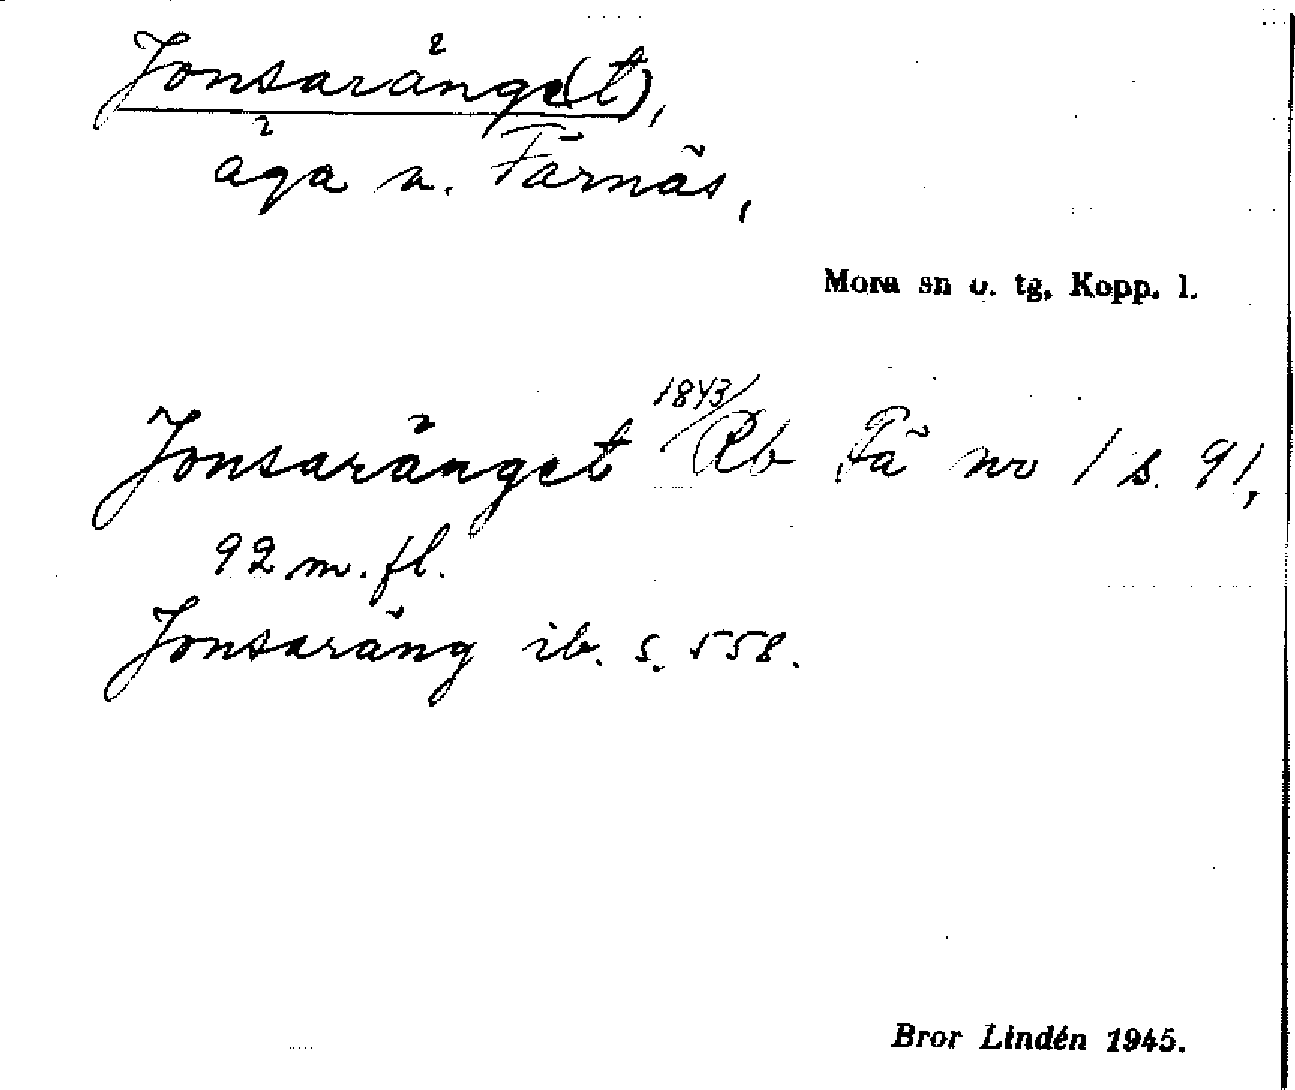 Jonsaränge(t),
äga n. Färnäs,
Mora sn o. tg, Kopp. l.
Jonsaränget 1843/Rb Fä nr 1 s. 91,
92 m. fl.
Jonsaräng ib. s. 558.
Bror Lindén 1945.